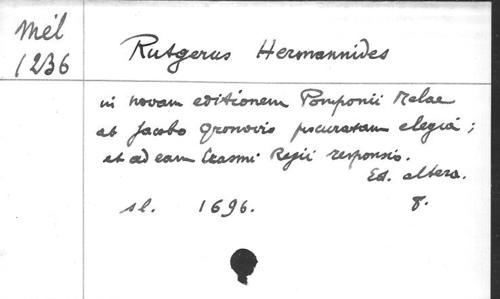 Mél
1236
Rutgerus Hermannides
in novam editionem Pomponii Melae
ab Jacobo Gronovio procuratam elegia;
et ad eam Erasmi Regii responsio.
Ed. altera.
sl. 1696. 8.